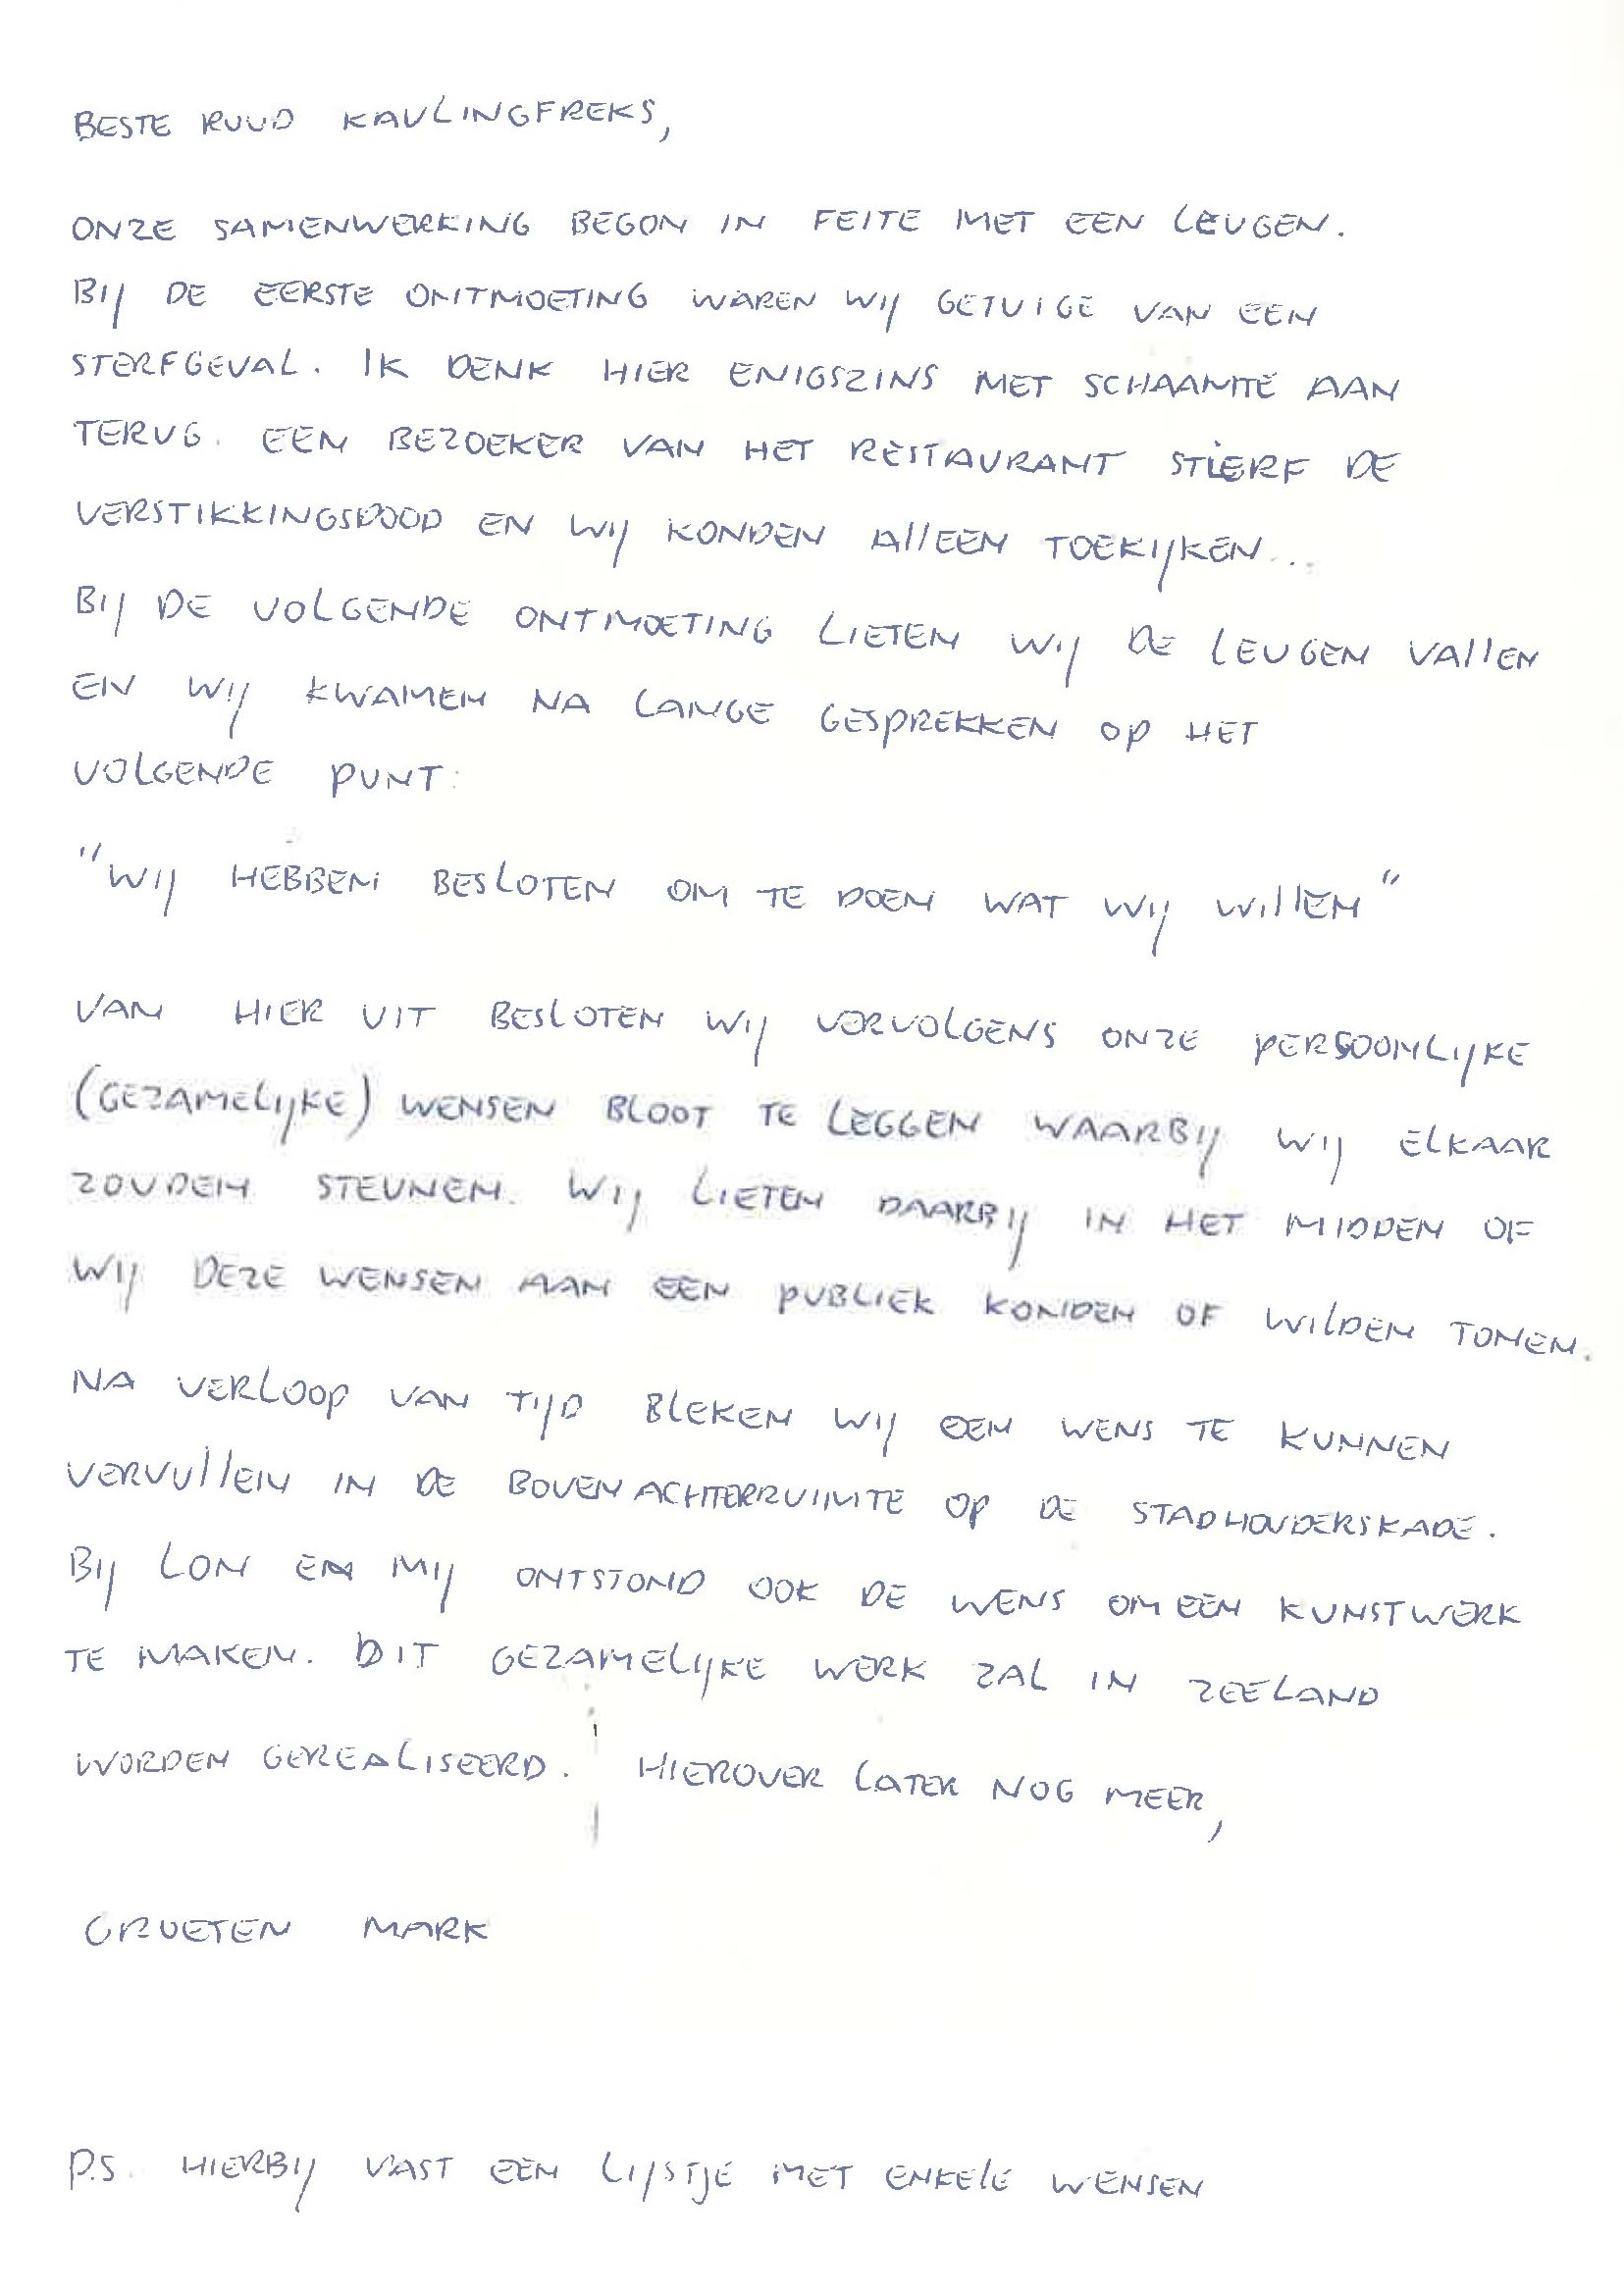 BESTE RUUD KAULINGFREKS,
ONZE SAMENWERKING BEGON IN FEITE MET EEN LEUGEN.
BIJ DE EERSTE ONTMOETING WAREN WIJ GETUIGE VAN EEN
STERFGEVAL. IK DENK HIER ENIGSZINS MET SCHAAMTE AAN
TERUG. EEN BEZOEKER VAN HET RESTAURANT STIERF DE
VERSTIKKINGSDOOD EN WIJ KONDEN ALLEEN TOEKIJKEN...
BIJ DE VOLGENDE ONTMOETING LIETEN WIJ DE LEUGEN VALLEN
EN WIJ KWAMEN NA LANGE GESPREKKEN OP HET
VOLGENDE PUNT:
"WIJ HEBBEN BESLOTEN OM TE DOEN WAT WIJ WILLEN"
VAN HIER UIT BESLOTEN WIJ VERVOLGENS ONZE PERSOONLIJKE
(GEZAMELIJKE) WENSEN BLOOT TE LEGGEN WAARBIJ WIJ ELKAAR
ZOUDEN STEUNEN. WIJ LIETEN DAARBIJ IN HET MIDDEN OF
WIJ DEZE WENSEN AAN EEN PUBLIEK KONDEN OF WILDEN TONEN.
NA VERLOOP VAN TIJD BLEKEN WIJ EEN WENS TE KUNNEN
VERVULLEN IN DE BOVENACHTERRUIMTE OP DE STADHOUDERSKADE.
BIJ LON EN MIJ ONTSTOND OOK DE WENS OM EEN KUNSTWERK
TE MAKEN. DIT GEZAMELIJKE WERK ZAL IN ZEELAND
WORDEN GEREALISEERD. HIEROVER LATER NOG MEER,
GROETEN MARK
P.S. HIERBIJ VAST EEN LIJSTJE MET ENKELE WENSEN